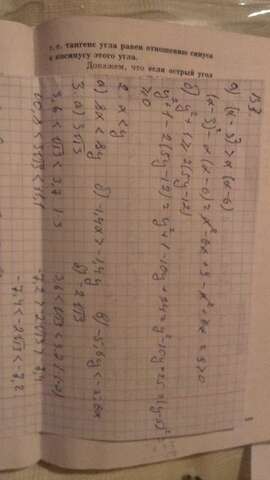 т. е. тангенс угла равен отношению синуса
к косинусу этого угла.
Докажем, что если острый угол
а) (x-3)² > x(x-6)
(x-3)² - x(x-6) = x² - 6x + 9 - x² + 6x = 9 > 0
б) y² + 1 ≥ 2(5y-12)
y² + 1 - 2(5y-12) = y² + 1 - 10y + 24 = y² - 10y + 25 = (y-5)² ≥ 0
2. x < y
а) 8x < 8y б) -1,4x > -1,4y в) -5,6y < -5,6x
3. а) 3√13 б) -2√13
3,6 < √13 < 3,7 | ·3 3,6 < √13 < 3,7 | ·(-2)
10,8 < 3√13 < 11,1 -7,2 > -2√13 > -7,4
-7,4 < -2√13 < -7,2